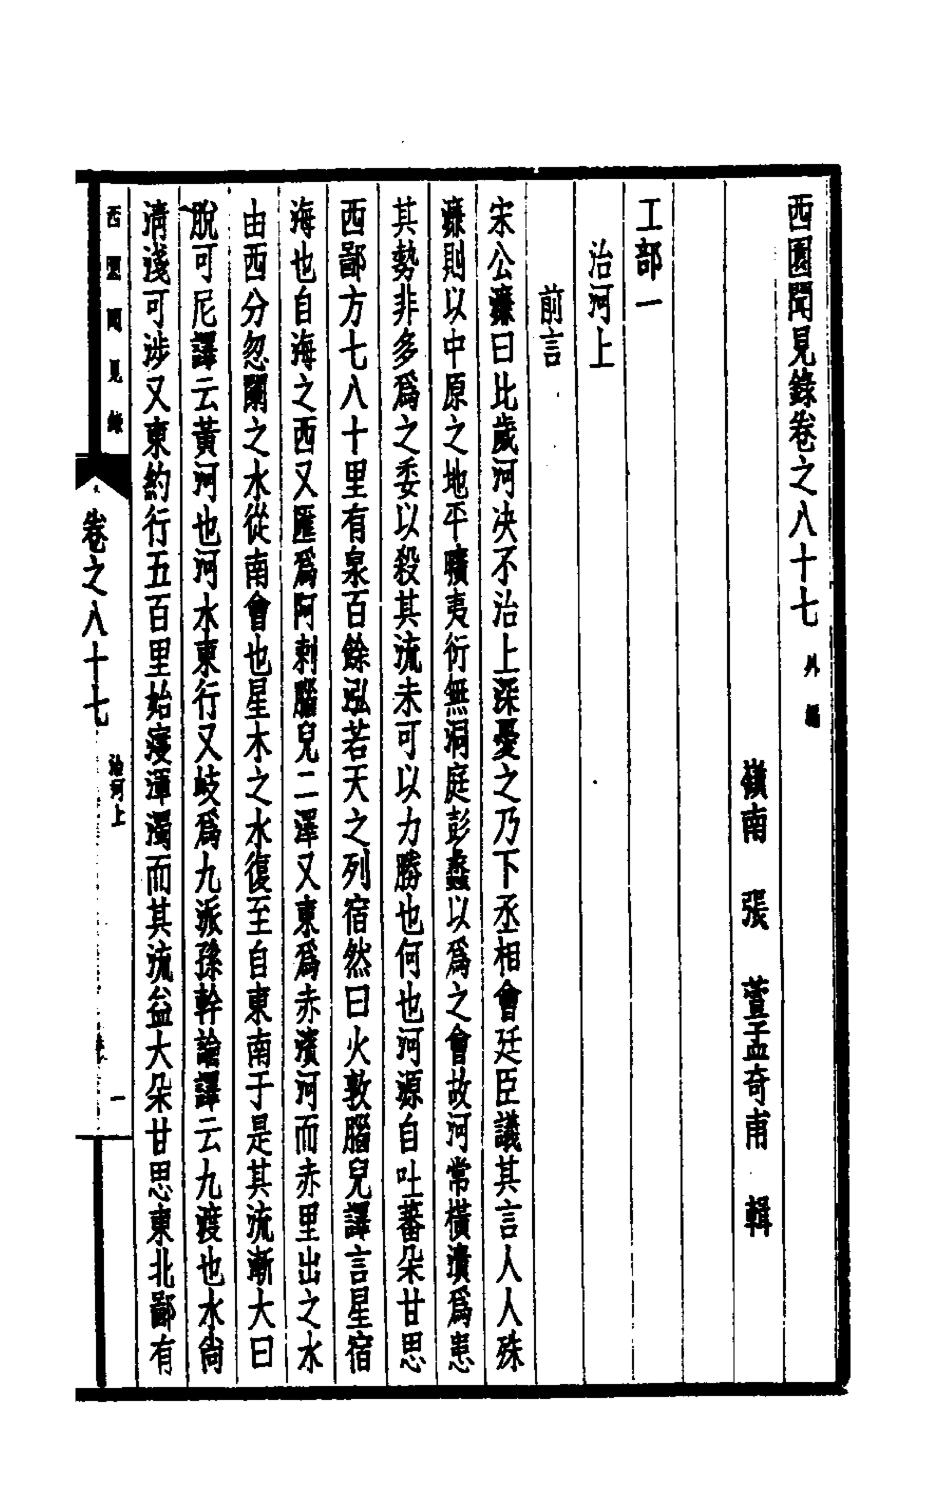 西園聞見錄卷之八十七 外編
嶺南 張 萱孟奇甫 輯
工部一
治河上
前言
宋公濂曰比歲河决不治上深憂之乃下丞相會廷臣議其言人人殊
濂則以中原之地平曠夷衍無洞庭彭蠡以爲之會故河常橫潰爲患
其勢非多爲之委以殺其流未可以力勝也何也河源自吐蕃朵甘思
西鄙方七八十里有泉百餘泓若天之列宿然曰火敦腦兒譯言星宿
海也自海之西又匯爲阿剌腦兒二澤又東爲赤濱河而赤里出之水
由西分忽闌之水從南會也星木之水復至自東南于是其流漸大曰
脫可尼譯云黃河也河水東行又岐爲九派孫幹論譯云九渡也水尙
淸淺可涉又東約行五百里始寖渾濁而其流益大朵甘思東北鄙有
西園聞見錄
卷之八十七
治河上
一